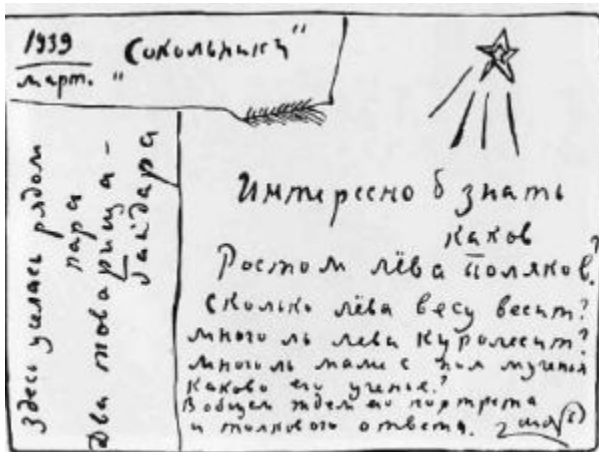 1939
март.
"Сокольники"
Здесь уселась рядом
пара
Два товарища -
Гайдара
Интересно б знать
каков
Ростом лёва Поляков?
Сколько лёва весу весит?
много ль лева куролесит?
много ль маме с ним мученья
Каково его ученье?
В общем ждем его портрета
и толкового ответа.